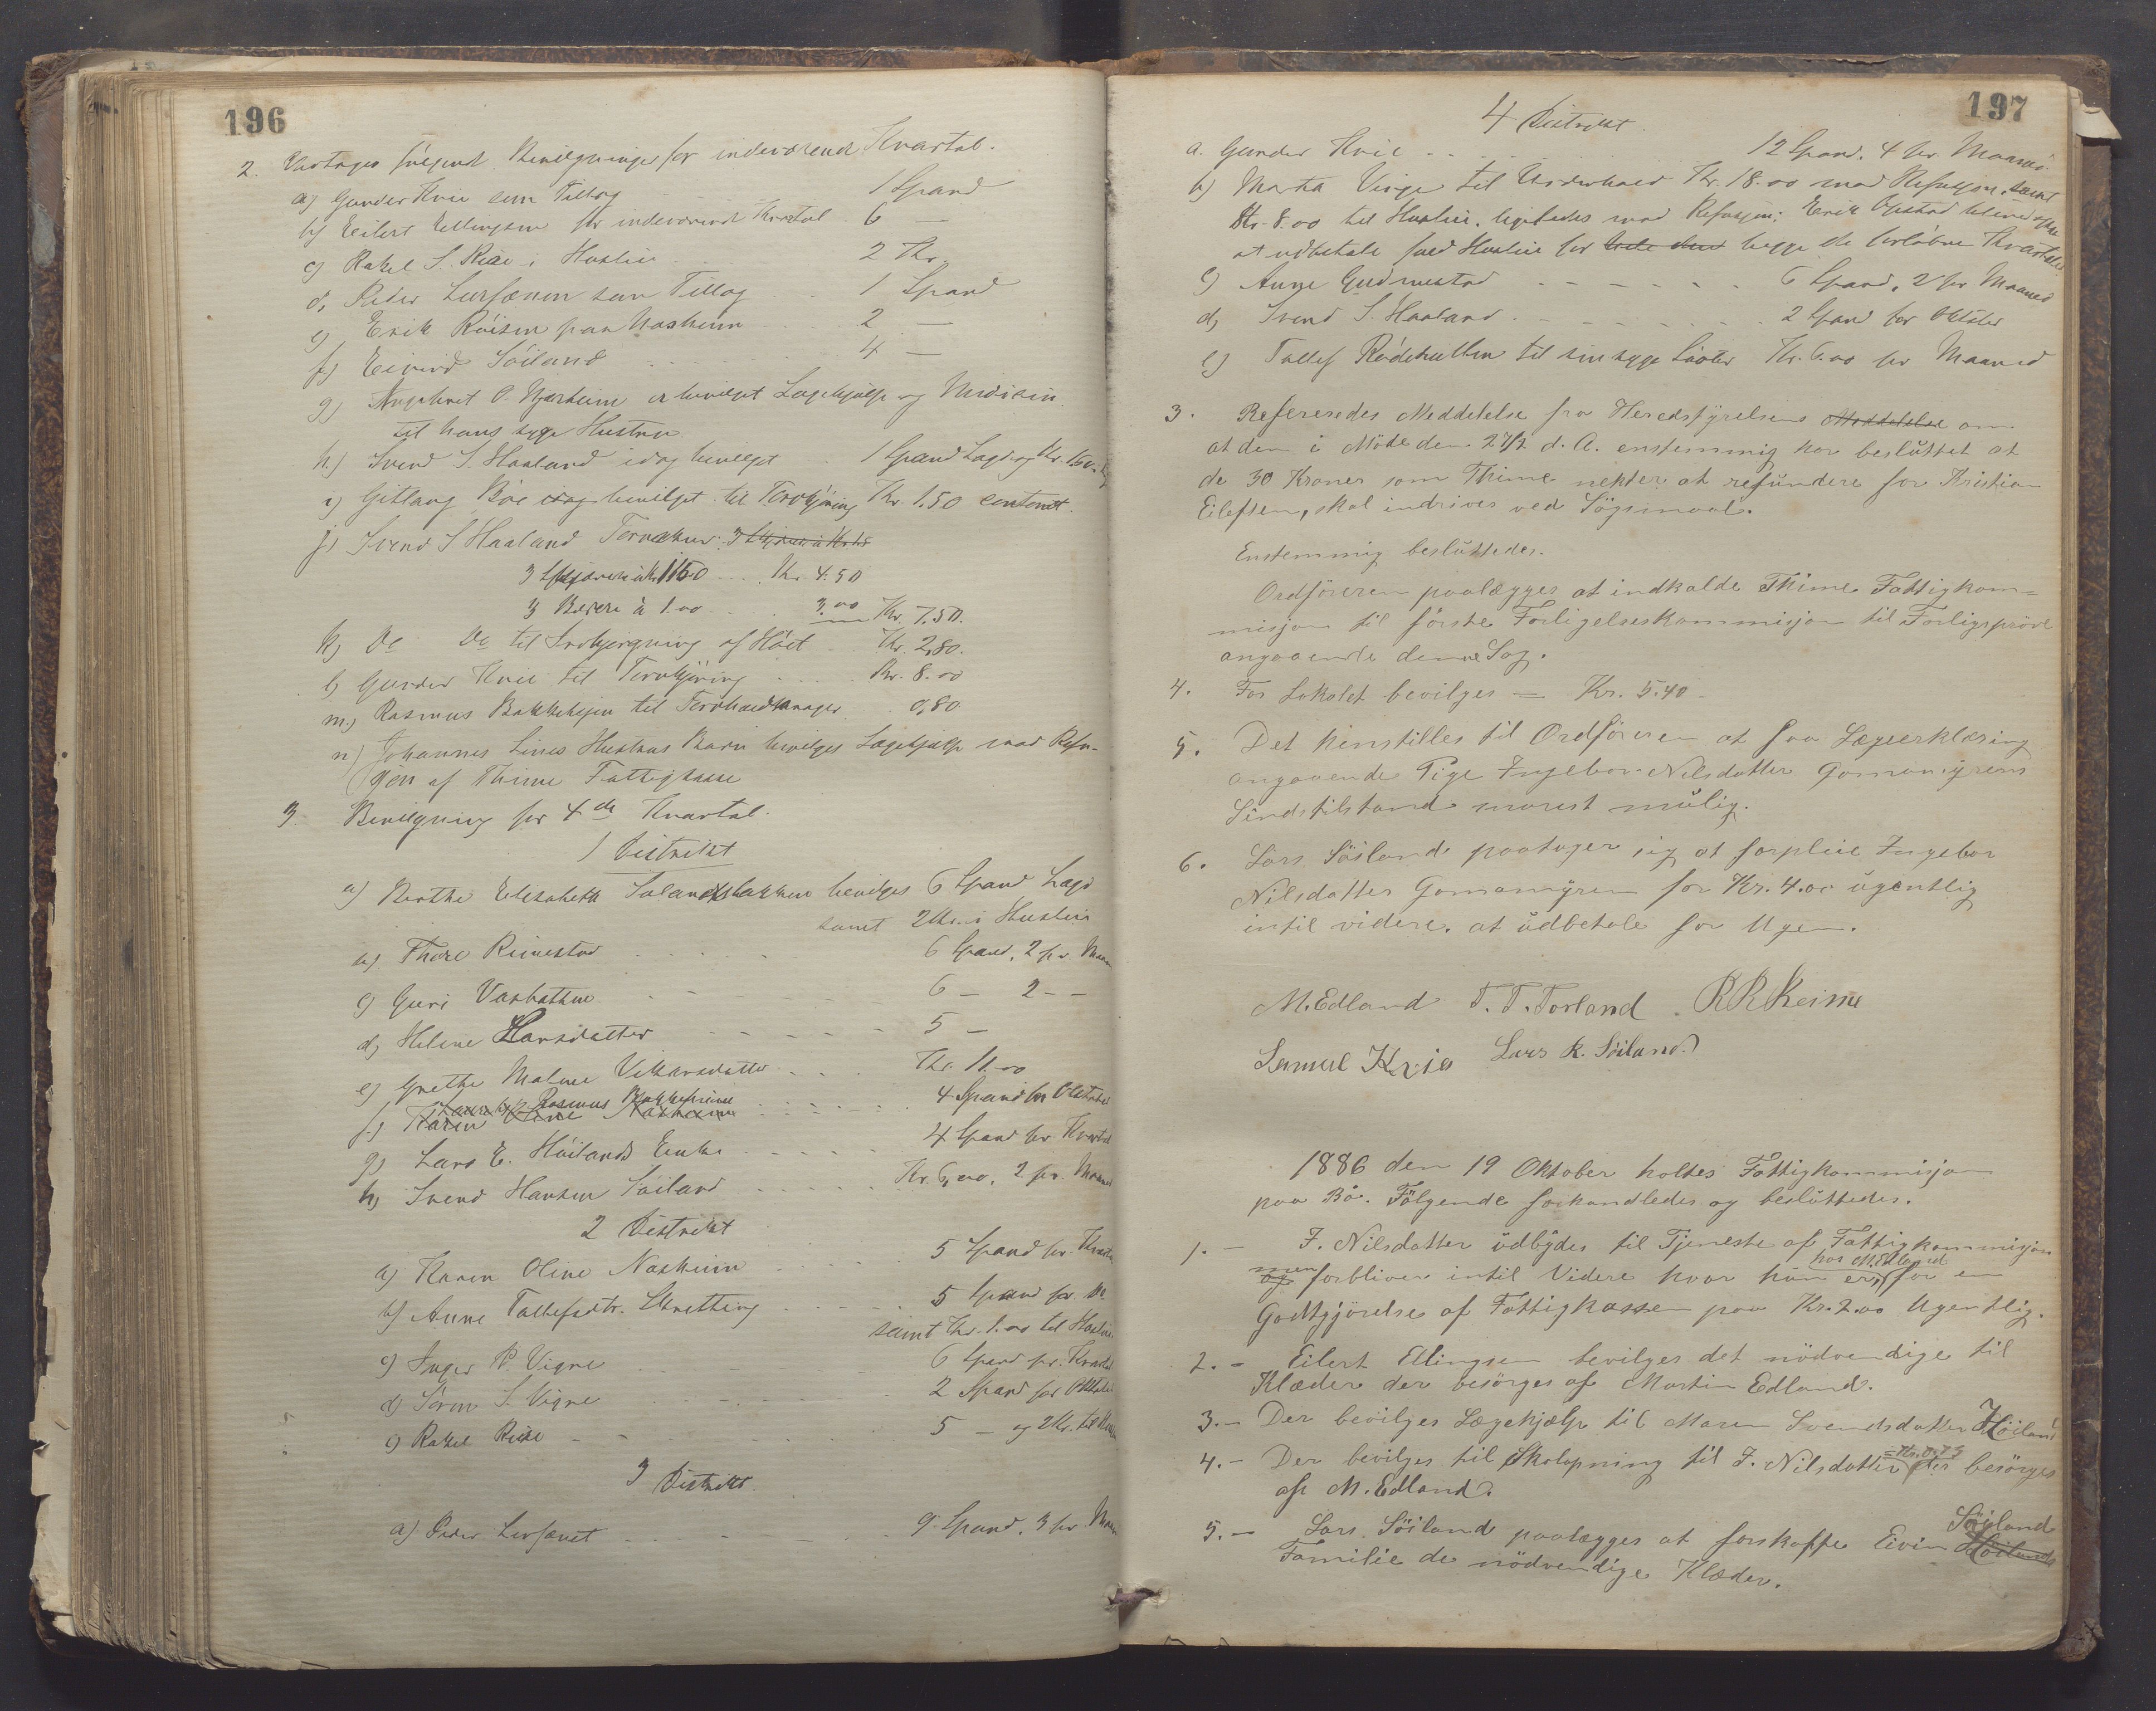 196
2. Vedtages følgende Bevilgninger for indeværende Kvartal.
a) Gunder Kvie som Tillæg 1 Spand
b) Eilert Ellingsen for indeværende Kvartal 6 —
c) Rakel S. Risa i Husleie 2 Kr.
d) Peder som Tillæg 1 Spand
e) Erik paa Naskeim 2 —
f) Eivind Söiland 4 —
g) O. Njærheim er bevilget Lægehjælp og Medicin
til hans syge Hustru
h) Svend S. Haaland idag bevilget 1 Spand
i) Gitlaug Böe idag bevilget til Torvkjöring Kr. 1.50 contant.
j) Svend S Haaland
3 à Kr. 1.50 Kr. 4.50
3 Bærere à 1.00 3.00 Kr. 7.50.
k) Do Do til Indbjergning af Höet Kr. 2.80.
l) Gunder Kvie til Torvkjöring Kr. 8.00
m) Rasmus til 0,80
n) Johannes Lines Hustrus Barn bevilges Lægehjælp mod Refu-
sjon af Thime Fattigkasse
3. Bevilgning for 4de Kvartal.
1 Distrikt
a) Berthe Elisabeth bevilges 6 Spand
samt 2 Kr. i Husleie
b) Thore Rimestad 6 Spand, 2 pr
c) Guri 6 — 2 - -
d) Helene Larsdatter 5 —
e) Grethe Malene Kr. 11.00
f) Karen Oline Naskeim Rasmus 4 Spand for Oktober
g) Lars E. Höilands Enke 4 Spand for Kvartal
h) Svend Hansen Söiland Kr. 6,00, 2 pr. Maaned
2 Distrikt
a) Karen Oline Naskeim 5 Spand for
b) Anne Tollefsdtr. Skretting 5 Spand for Do
samt Kr. 1.00 til Husleie
c) Inger P. Vigre 6 Spand pr. Kvartal
d) Sören S. Vigre 2 Spand for Oktober
e) Rakel Risa 5 — og 2 Kr. til
3 Distrikt.
a) Peder 9 Spand, 3 pr
197
4 Distrikt.
a. Gunder Kvie 12 Spand, 4 pr Maaned
b) Marta Vigre til Underhold Kr. 18.00 mod Refusjon samt
Kr. 8.00 til Husleie, ligeledes mod Refusjon; Erik Opstad
at udbetale sned Husleie for begge de forløbne Kvartaler
c) Anne Gudmestad 6 Spand, 2 pr Maaned
d) Svend S. Haaland 2 Spand for Oktober
e) Tollef til sin syge Kr. 6.00 pr Maaned
3. Refereredes Meddelelse fra Heredstyrelsens Meddelelse om
at den i Möte den 27/2 d. A. enstemmig har beslüttet at
de 30 Kroner som Thime nekter at refündere for Kristian
Eilefsen, skal indrives ved Sögsmaal.
Enstemmig beslüttedes.
Ordföreren paalægges at indkalde Thime Fattigkom-
misjon til förste Forligelseskommisjon til Forligspröve
angaaende denne Sag.
4. For Lokalet bevilges — Kr. 5.40 -
5. Det henstilles til Ordföreren at faa Lægeerklæring
angaaende Pige Ingebor Nilsdatter Gomamyrens
Sindstilstand snarest mülig.
6. Lars Söiland paatager sig at forpleie Ingebor
Nilsdatter Gomamyren for Kr. 4.00 ügentlig
intil videre. at üdbetale for Ugen.
M. Edland T. T. Torland R R Reime
Samuel Kvia Lars R. Söiland
1886 den 19 Oktober holtes Fattigkommisjon
paa Bö. Fölgende forhandledes og beslüttedes.
1. - I. Nilsdatter üdbydes til Tjeneste af Fattigkommisjon
men og forbliver intil Videre hvor hün er, hos M. Edland for en
Godtgjörelse af Fattigkassen paa Kr. 2.00 Ugentlig.
2. - Eilert Ellingsen bevilges det nödvendige til
Klæder der besörges af Martin Edland.
3. - Der bevilges Lægehjælp til Maren Svendsdatter Höiland
4. - Der bevilges til Skolapning til I. Nilsdatter = Kr. 0.75 der besörges
af M. Edland.
5. - Lars Söiland paalægges at forskaffe Eivin Höilands Söiland
Familie de nödvendige Klæder.